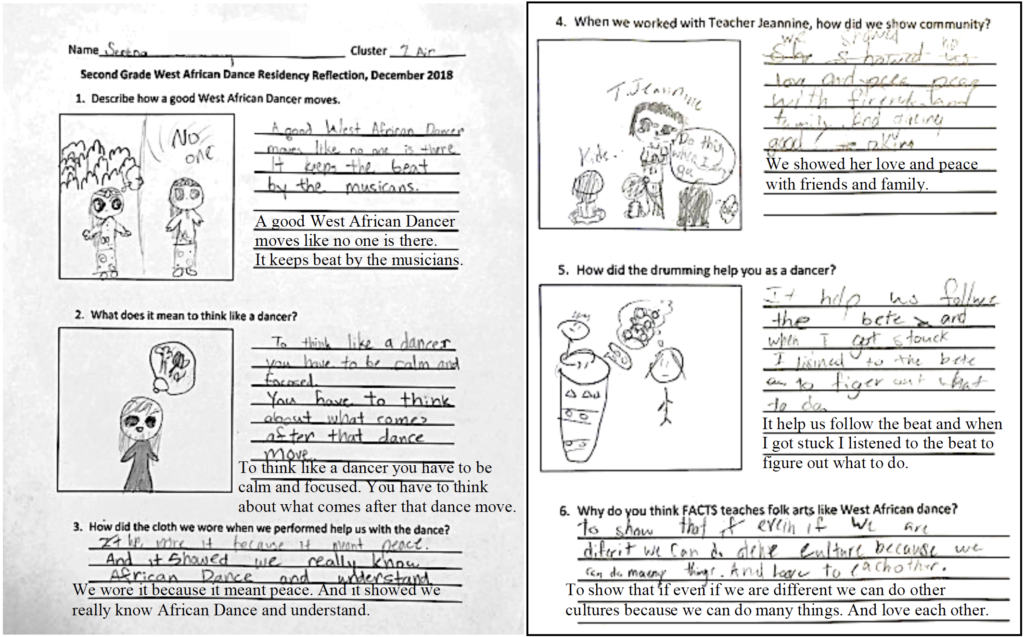 Name Serena Cluster 2 Air
Second Grade West African Dance Residency Reflection, December 2018
1. Describe how a good West African Dancer moves.
NO
one
A good West African Dancer
moves like no one is there
It keeps the beat
by the musicans.
A good West African Dancer
moves like no one is there.
It keeps beat by the musicians.
2. What does it mean to think like a dancer?
To think like a dancer
you have to be calm and
focused.
You have to think
about what comes
after that dance
move.
To think like a dancer you have to be
calm and focused. You have to think
about what comes after that dance move.
3. How did the cloth we wore when we performed help us with the dance?
it because it ment peace.
And it showed we really know
African Dance and understand
We wore it because it meant peace. And it showed we
really know African Dance and understand.
4. When we worked with Teacher Jeannine, how did we show community?
T. Jeannine
Kids..
Do this
when I
we
love and
with and
family and
good
We showed her love and peace
with friends and family.
5. How did the drumming help you as a dancer?
It help us follow
the bete and
when I got stouck
I lisined to the bete
to figer out what
to do
It help us follow the beat and when
I got stuck I listened to the beat to
figure out what to do.
6. Why do you think FACTS teaches folk arts like West African dance?
to show that if evein if we are
diferit we can do culture because we
can do maeny things. And love to eachother.
To show that if even if we are different we can do other
cultures because we can do many things. And love each other.